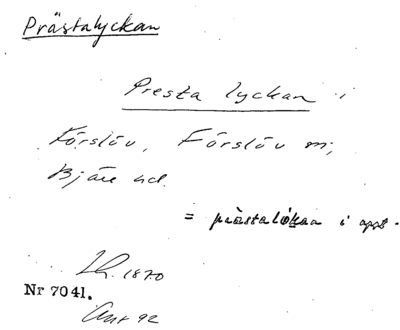 Prästalyckan
Presta lyckan i
Förslöv, Förslöv sn;
Bjäre hd.
= prästalökan i uppt.
Lh. 1870
Nr 7041.
Ant 92